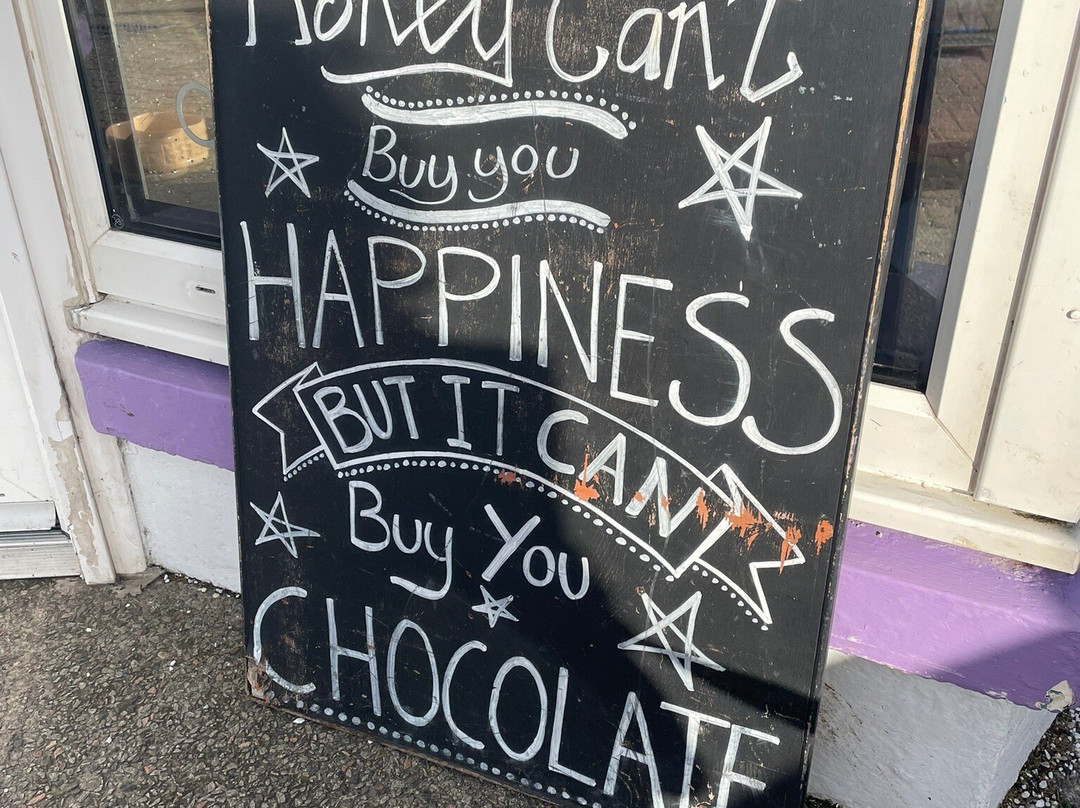 Money Can't
Buy you
HAPPINESS
BUT IT CAN
Buy You
CHOCOLATE